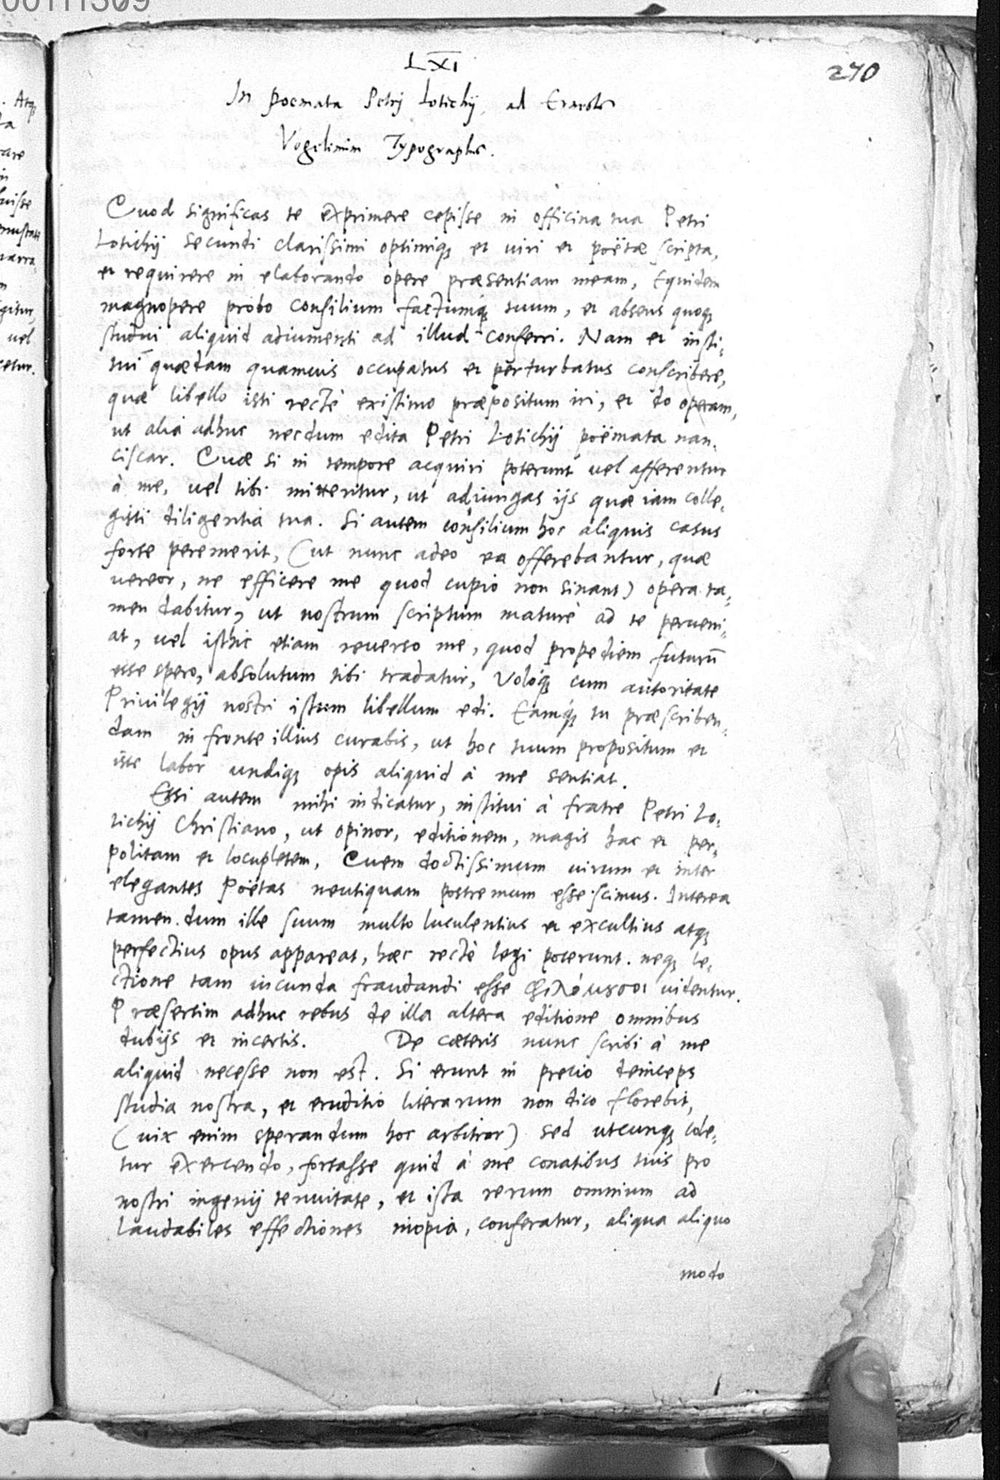 00111309
LXI
270
In poemata Petrj Lotichij, ad
Vogelinum Typographum.
Quod significas te exprimere cepisse in officina tua Petri
Lotichij Secundi clarissimi optimiq; et viri et poëtae scripta,
et requirere in elaborando opere praesentiam meam, Equidem
magnopere probo consilium factumq́; tuum, et absens quoq;
studui aliquid adiumenti ad illud conferri. Nam et insti-
tui quaedam quamuis occupatus et perturbatus conscribere,
quae libello isti rectè existimo praepositum iri, et do operam,
ut alia adhuc necdum edita Petri Lotichij poëmata nan-
ciscar. Quae si in tempore acquiri poterunt vel afferentur
à me, vel tibi mittentur, ut adiungas ijs quae iam colle-
gisti diligentia tua. Si autem consilium hoc aliquis casus
forte peremerit, (ut nunc adeo ea offerebantur, quae
uereor, ne efficere me quod cupio non sinant) opera ta-
men dabitur, ut nostrum scriptum maturè ad te perueni-
at, vel isthic etiam reuerso me, quod propediem futurū
esse spero, absolutum tibi tradatur, Voloq́; cum autoritate
Priuilegij nostri istum libellum edi. Eamq́; tu praescriben-
dam in fronte illius curabis, ut hoc tuum propositum et
iste labor undiq; opis aliquid à me sentiat.
Etsi autem mihi indicatur, institui à fratre Petri Lo-
tichij Christiano, ut opinor, editionem, magis hac et per-
politam et locupletem, Quem doctissimum uirum et inter
elegantes Poëtas neutiquam postremum esse scimus. Interea
tamen dum ille suum multo luculentius et excultius atq;
perfectius opus appareat, haec rectè legi poterunt. neq; le-
ctione tam iucunda fraudandi esse φιλόμουσοι uidentur.
Praesertim adhuc rebus de illa altera editione omnibus
dubijs et incertis. De caeteris nunc scribi à me
aliquid necesse non est. Si erunt in precio deinceps
studia nostra, et eruditio literarum non dico florebit,
(uix enim sperandum hoc arbitror) sed utcunq; cole-
tur exercendo, fortasse quid à me conatibus tuis pro
nostri ingenij tenuitate, et ista rerum omnium ad
laudabiles effectiones inopia, conferatur, aliqua aliquo
modo